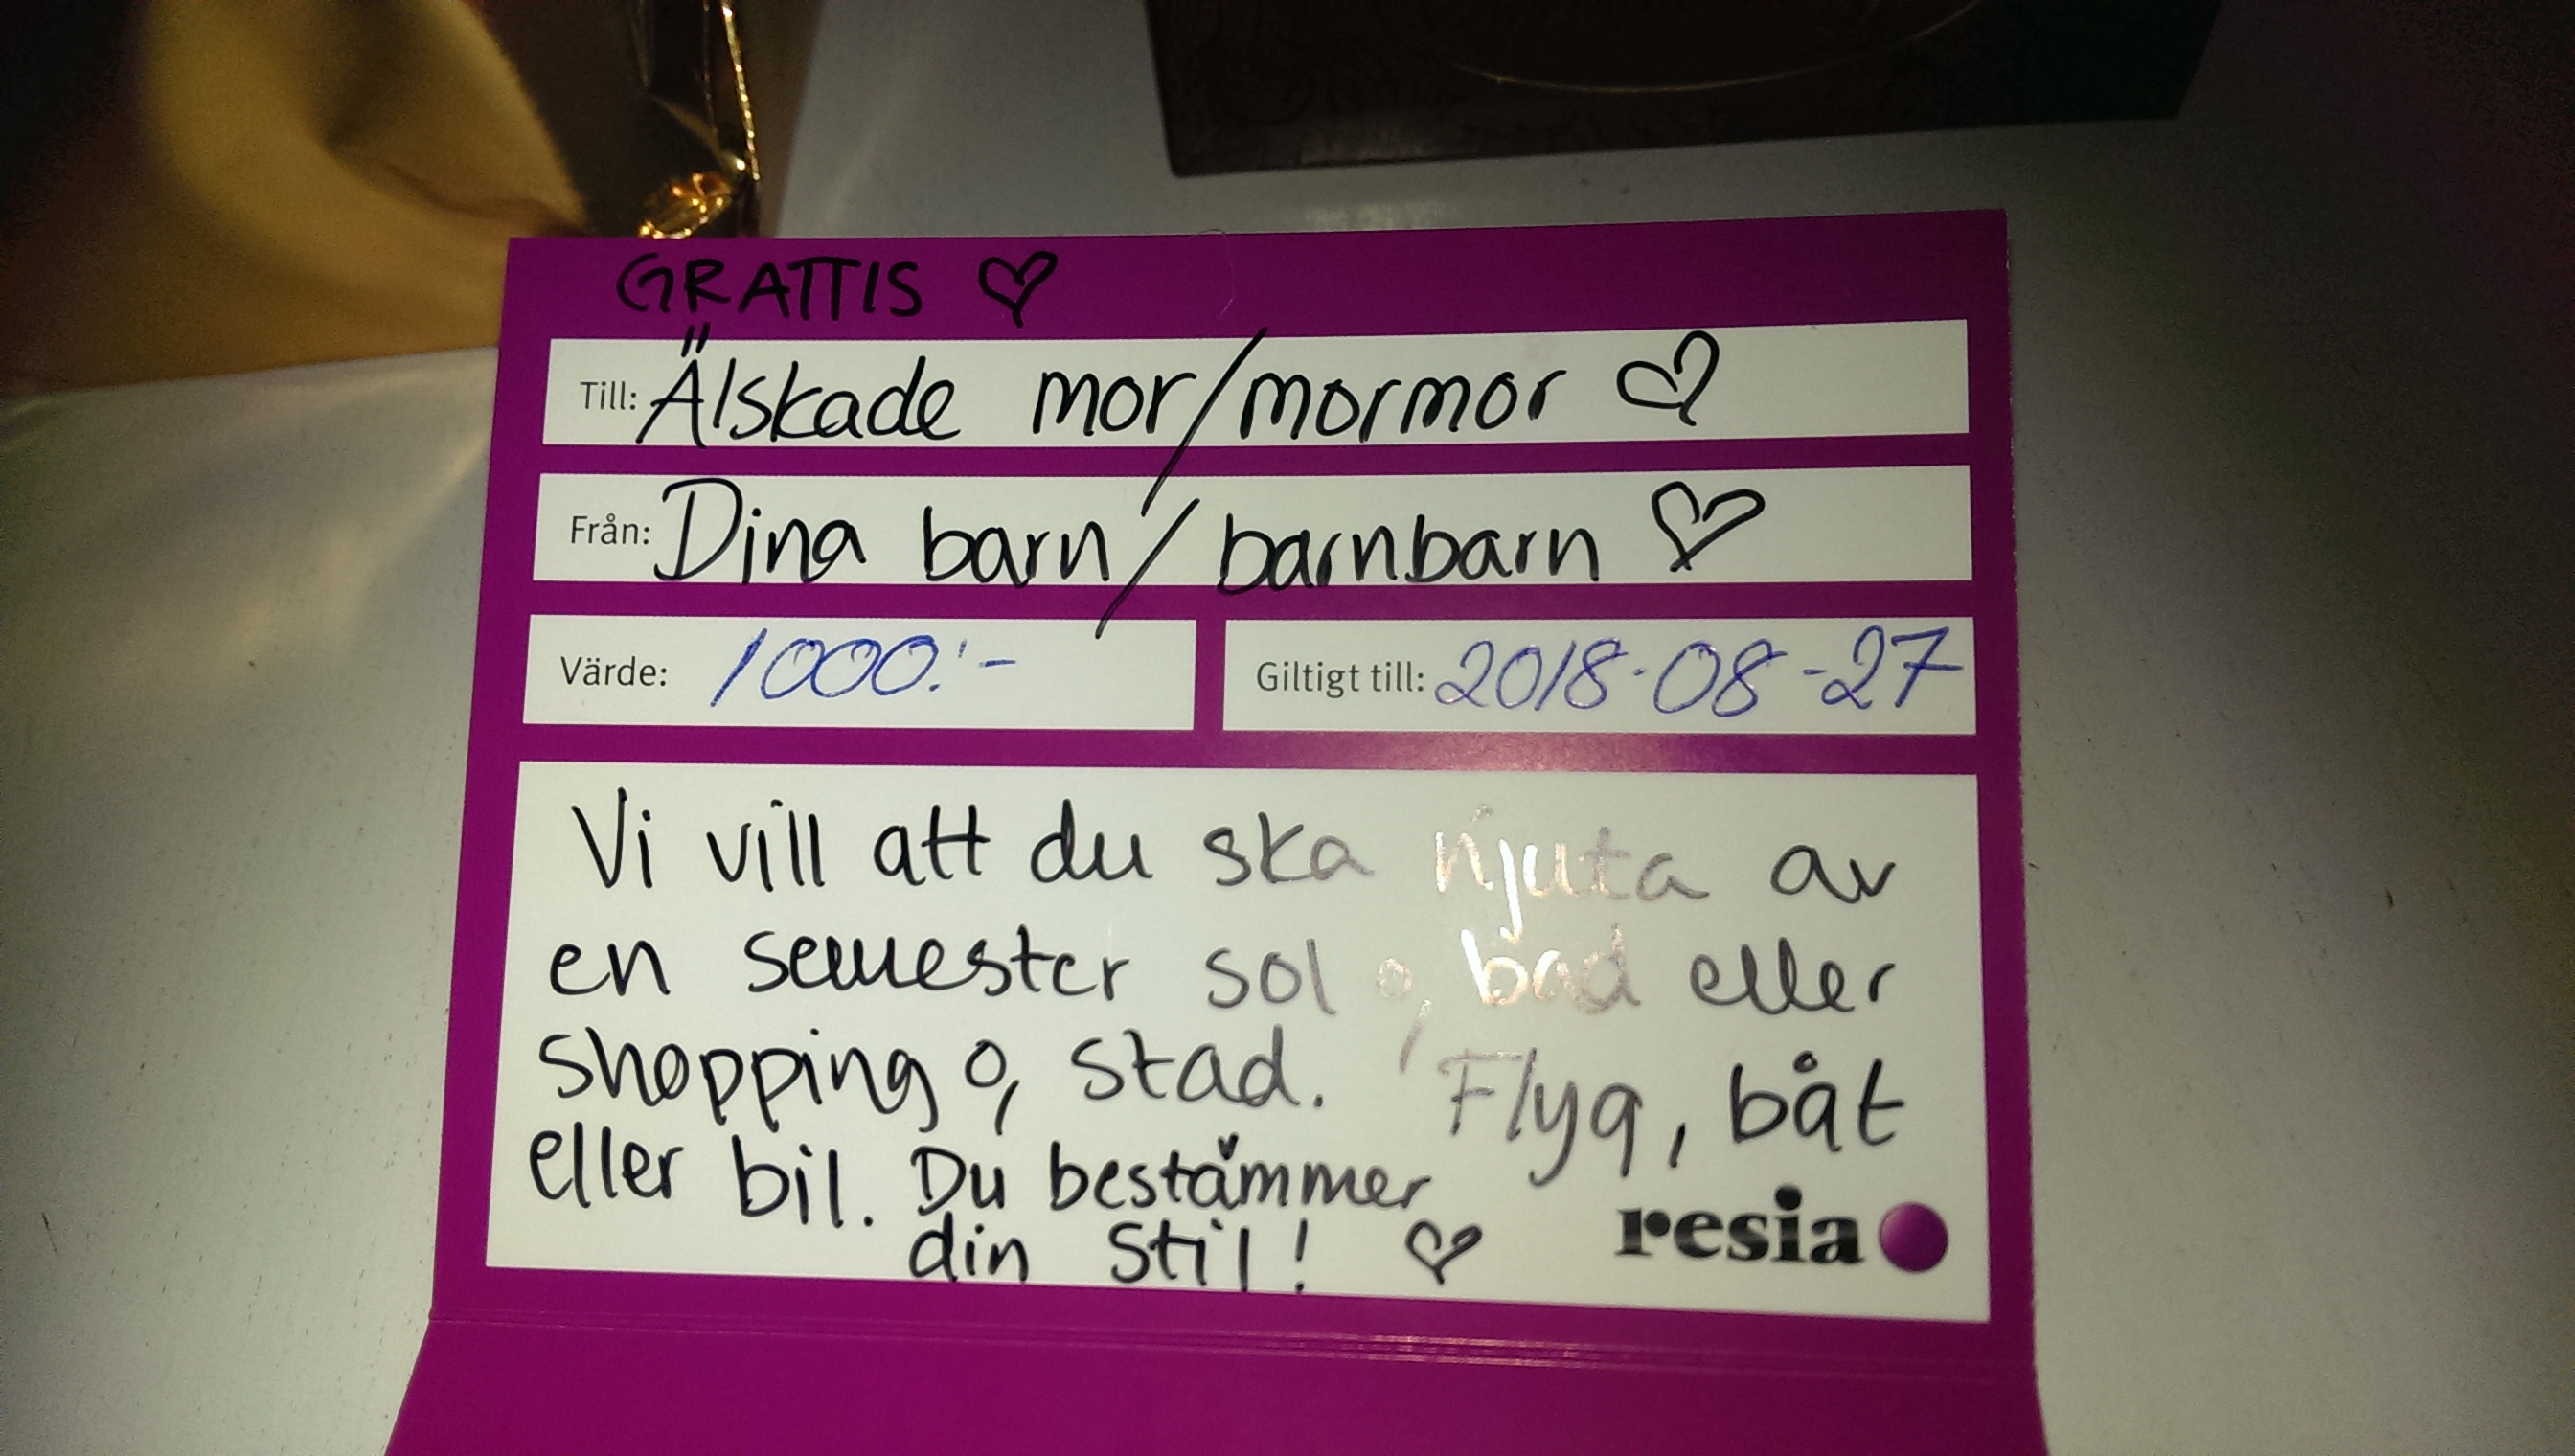 GRATTIS ♡
Till: Älskade mor/mormor ♡
Från: Dina barn/barnbarn ♡
Värde: 1000:-
Giltigt till: 2018-08-27
Vi vill att du ska njuta av
en semester sol o, bad eller
shopping o, stad. Flyg, båt
eller bil. Du bestämmer
din stil! ♡
resia